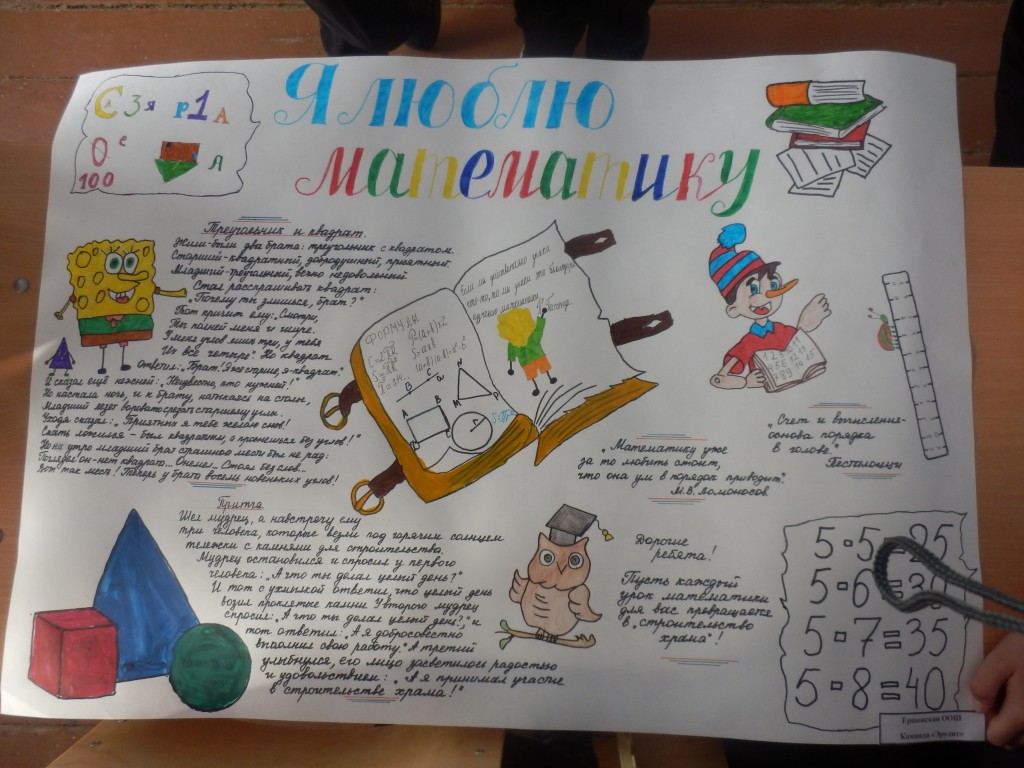 Я люблю
математику
С 3 я р1А
0 е
100
А
Треугольник и квадрат.
Жили-были два брата: треугольник с квадратом.
Старший-квадратный, добродушный, приятный.
Младший-треугольный, вечно недовольный.
Стал расспрашивать квадрат:
„Почему ты злишься, брат?"
Тот кричит ему: „Смотри,
Ты полней меня и шире.
У меня углов лишь три, у тебя
Их все четыре". Но квадрат
ответил: „Брат! Я же старше, я-квадрат."
И сказал ещё нежней: „Неизвестно, кто нужней!"
Но настала ночь, и к брату, натыкаясь на столы,
Младший лезет воровато срезать старшему углы.
Уходя сказал: „Приятных я тебе желаю снов!
Спать ложился – был квадратом, а проснёшься без углов!"
Но на утро младший брат страшной мести был не рад:
Поглядел он-нет квадрата... Онемел... Стоял без слов...
Вот так месть! Теперь у брата восемь новеньких углов!
ФОРМУЛЫ
P=(a+b)×2
S=a×b
A B C N M P
„Математику уже
за то любить стоит,
что она ум в порядок приводит."
М.В. Ломоносов
„Счет и вычисления-
основа порядка
в голове"
Песталоцци
1 2 3
4 5 6
Притча
Шел мудрец, а навстречу ему
три человека, которые везли под горячим солнцем
тележки с камнями для строительства.
Мудрец остановился и спросил у первого
человека: „А что ты делал целый день?"
И тот с ухмылкой ответил, что целый день
возил проклятые камни. У второго мудрец
спросил: „А что ты делал целый день?", и
тот ответил: „А я добросовестно
выполнял свою работу." А третий
улыбнулся, его лицо засветилось радостью
и удовольствием: „А я принимал участие
в строительстве храма!"
Дорогие
ребята!
Пусть каждый
урок математики
для вас превращается
в „строительство
храма"!
5▫5=25
5▫6=30
5▫7=35
5▫8=40
Ершовская ООШ
Команда «Эрудит»